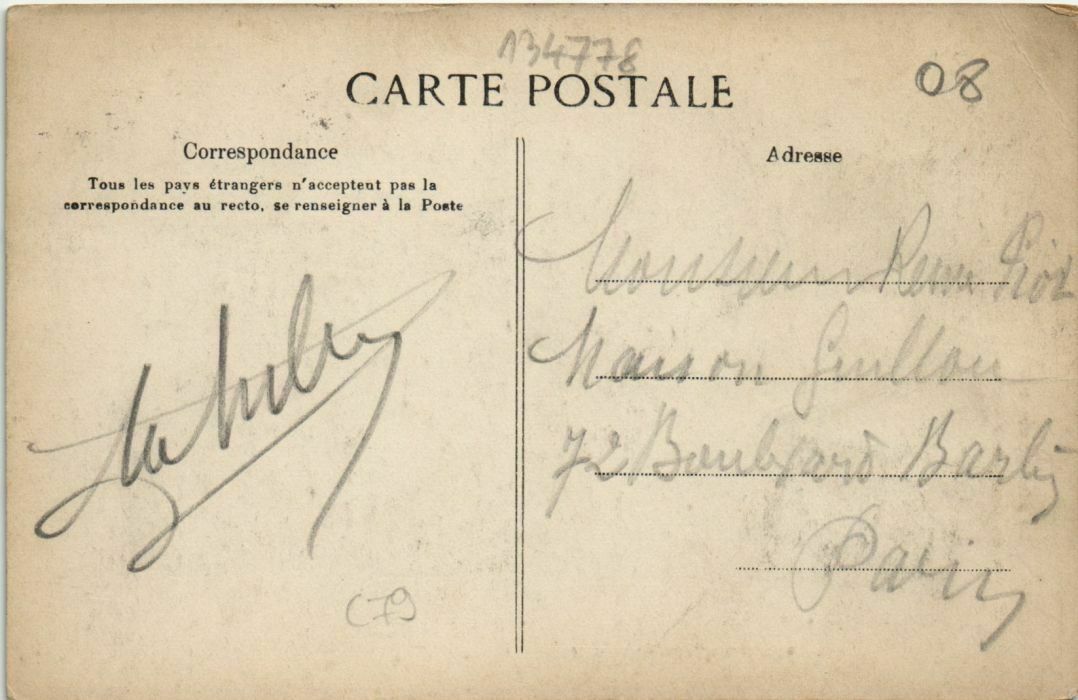 134778
CARTE POSTALE
08
Correspondance
Tous les pays étrangers n'acceptent pas la
correspondance au recto, se renseigner à la Poste
Adresse
Monsieur
Maison Guillou
72 Boulevard Barbès
Paris
(79